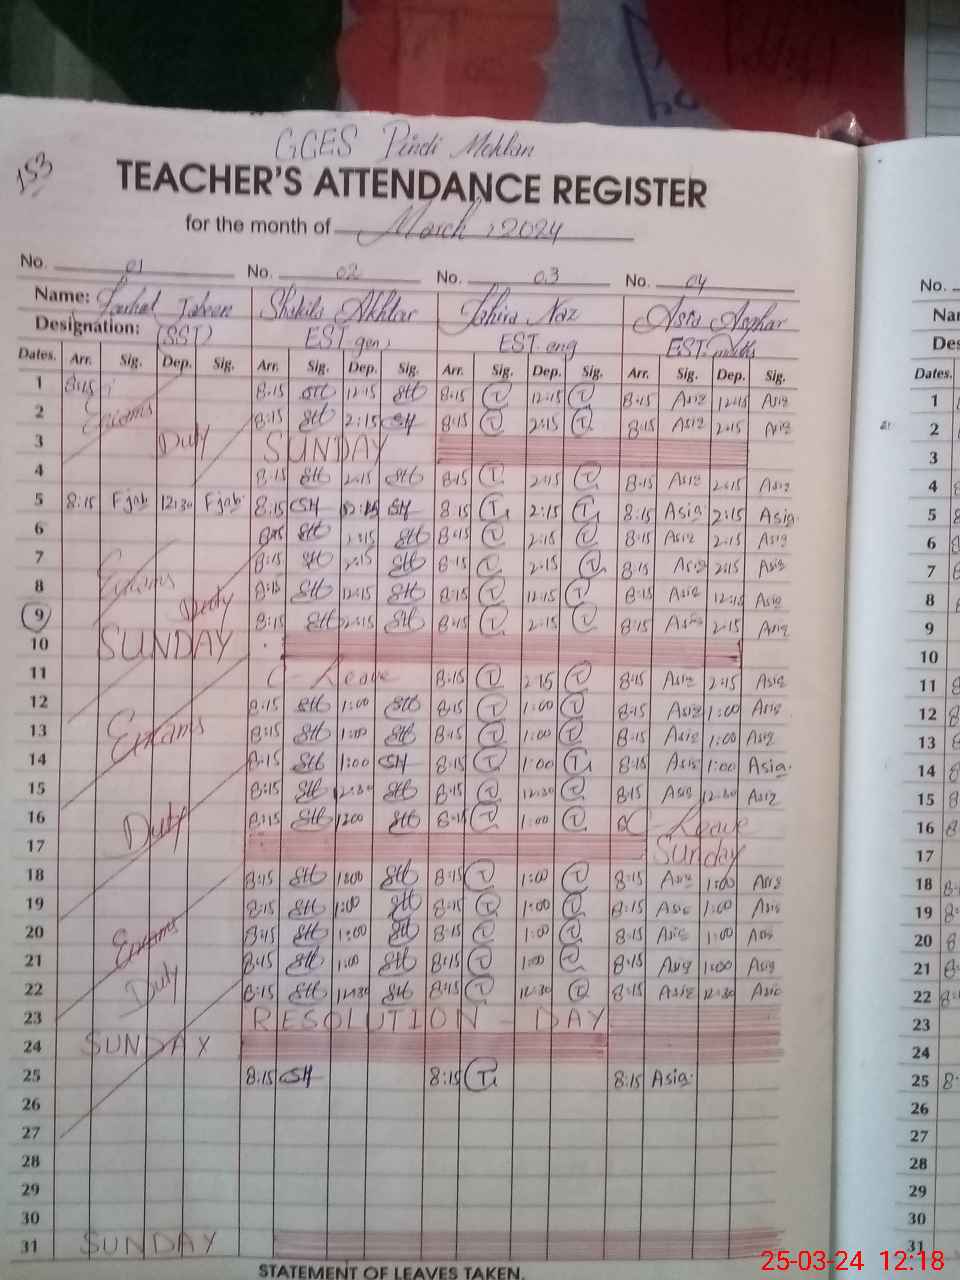 GGES Pindi Mehlan
153
TEACHER'S ATTENDANCE REGISTER
for the month of March, 2024
No. 01 No. 02 No. 03 No. 04 No.
Name: Shakila Akhtar Tahira Naz Asia Asghar
Designation: (SST) EST gen EST eng EST maths
Dates. Arr. Sig. Dep. Sig. Arr. Sig. Dep. Sig. Arr. Sig. Dep. Sig. Arr. Sig. Dep. Sig. Dates.
1 8:15 8:15 SH 12:15 SH 8:15 T 12:15 T 8:15 Asia 12:15 Asia 1
2 Exams 8:15 SH 2:15 SH 8:15 T 2:15 T 8:15 Asia 2:15 Asia 2
3 Duty SUNDAY 3
4 8:15 SH 2:15 SH 8:15 T 2:15 T 8:15 Asia 2:15 Asia 4
5 8:15 12:30 8:15 SH SH 8:15 T 2:15 T 8:15 Asia 2:15 Asia 5
6 8:15 SH 2:15 SH 8:15 T 2:15 T 8:15 Asia 2:15 Asia 6
7 Exams 8:15 SH 2:15 SH 8:15 T 2:15 T 8:15 Asia 2:15 Asia 7
8 Duty 8:15 SH 12:15 SH 8:15 T 12:15 T 8:15 Asia 12:15 Asia 8
9 8:15 SH 2:15 SH 8:15 T 2:15 T 8:15 Asia 2:15 Asia 9
10 SUNDAY 10
11 C - Leave 8:15 T 2:15 T 8:15 Asia 2:15 Asia 11
12 8:15 SH 1:00 SH 8:15 T 1:00 T 8:15 Asia 1:00 Asia 12
13 Exams 8:15 SH 1:00 SH 8:15 T 1:00 T 8:15 Asia 1:00 Asia 13
14 8:15 SH 1:00 SH 8:15 T 1:00 T 8:15 Asia 1:00 Asia 14
15 8:15 SH 12:30 SH 8:15 T 12:30 T 8:15 Asia 12:30 Asia 15
16 Duty 8:15 SH 1:00 SH 8:15 T 1:00 T C - Leave 16
17 Sunday 17
18 8:15 SH 1:00 SH 8:15 T 1:00 T 8:15 Asia 1:00 Asia 18
19 8:15 SH 1:00 SH 8:15 T 1:00 T 8:15 Asia 1:00 Asia 19
20 Exams 8:15 SH 1:00 SH 8:15 T 1:00 T 8:15 Asia 1:00 Asia 20
21 8:15 SH 1:00 SH 8:15 T 1:00 T 8:15 Asia 1:00 Asia 21
22 Duty 8:15 SH 12:30 SH 8:15 T 12:30 T 8:15 Asia 12:30 Asia 22
23 RESOLUTION - DAY 23
24 SUNDAY 24
25 8:15 SH 8:15 T 8:15 Asia 25
26 26
27 27
28 28
29 29
30 30
31 SUNDAY 31
STATEMENT OF LEAVES TAKEN.
25-03-24 12:18